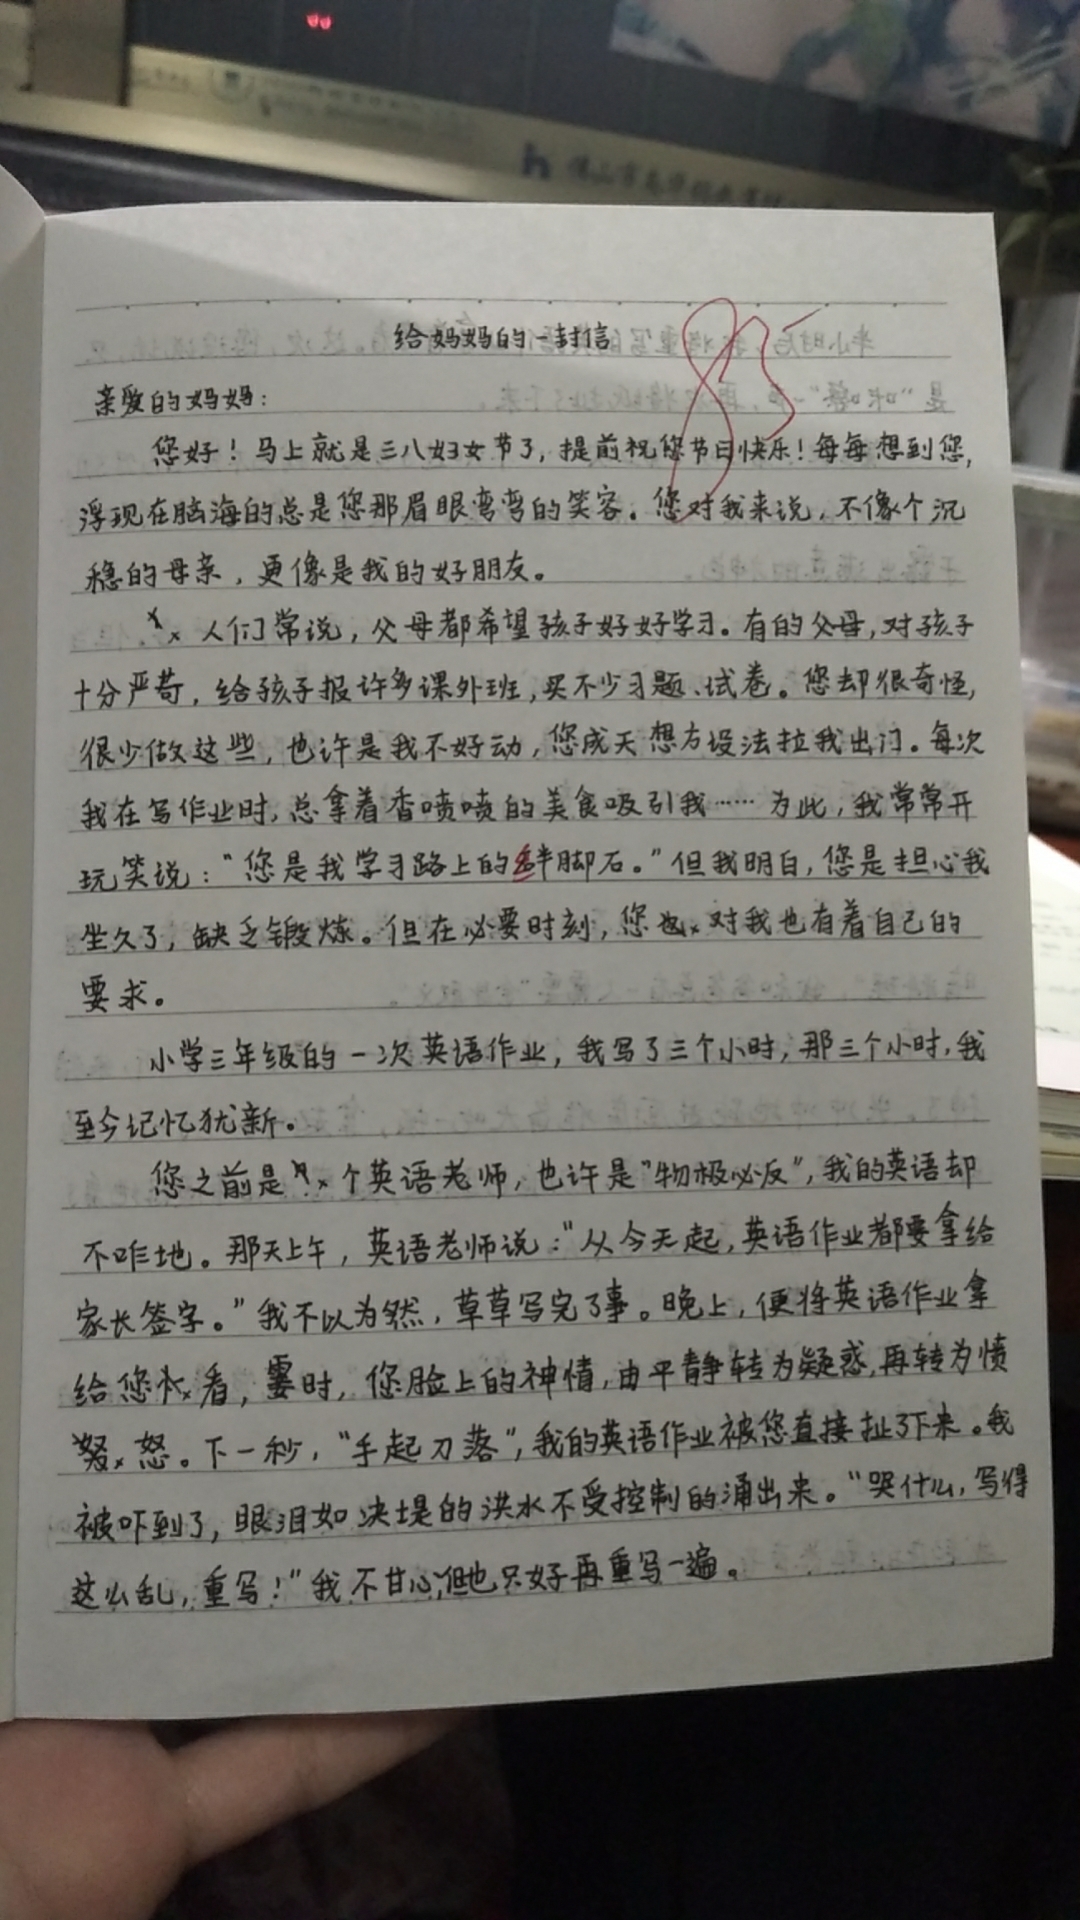 85
给妈妈的一封信
亲爱的妈妈：
您好！马上就是三八妇女节了，提前祝您节日快乐！每每想到您，
浮现在脑海的总是您那眉眼弯弯的笑容。您对我来说，不像个沉
稳的母亲，更像是我的好朋友。
人们常说，父母都希望孩子好好学习。有的父母，对孩子
十分严苛，给孩子报许多课外班，买不少习题、试卷。您却很奇怪，
很少做这些，也许是我不好动，您成天想方设法拉我出门。每次
我在写作业时，总拿着香喷喷的美食吸引我……为此，我常常开
玩笑说：“您是我学习路上的绊脚石。”但我明白，您是担心我
坐久了，缺乏锻炼。但在必要时刻，您对我也有着自己的
要求。
小学三年级的一次英语作业，我写了三个小时，那三个小时，我
至今记忆犹新。
您之前是个英语老师，也许是“物极必反”，我的英语却
不咋地。那天上午，英语老师说：“从今天起，英语作业都要拿给
家长签字。”我不以为然，草草写完了事。晚上，便将英语作业拿
给您看，霎时，您脸上的神情，由平静转为疑惑，再转为愤
怒。下一秒，“手起刀落”，我的英语作业被您直接扯了下来。我
被吓到了，眼泪如决堤的洪水不受控制的涌出来。“哭什么，写得
这么乱，重写！”我不甘心，但也只好再重写一遍。